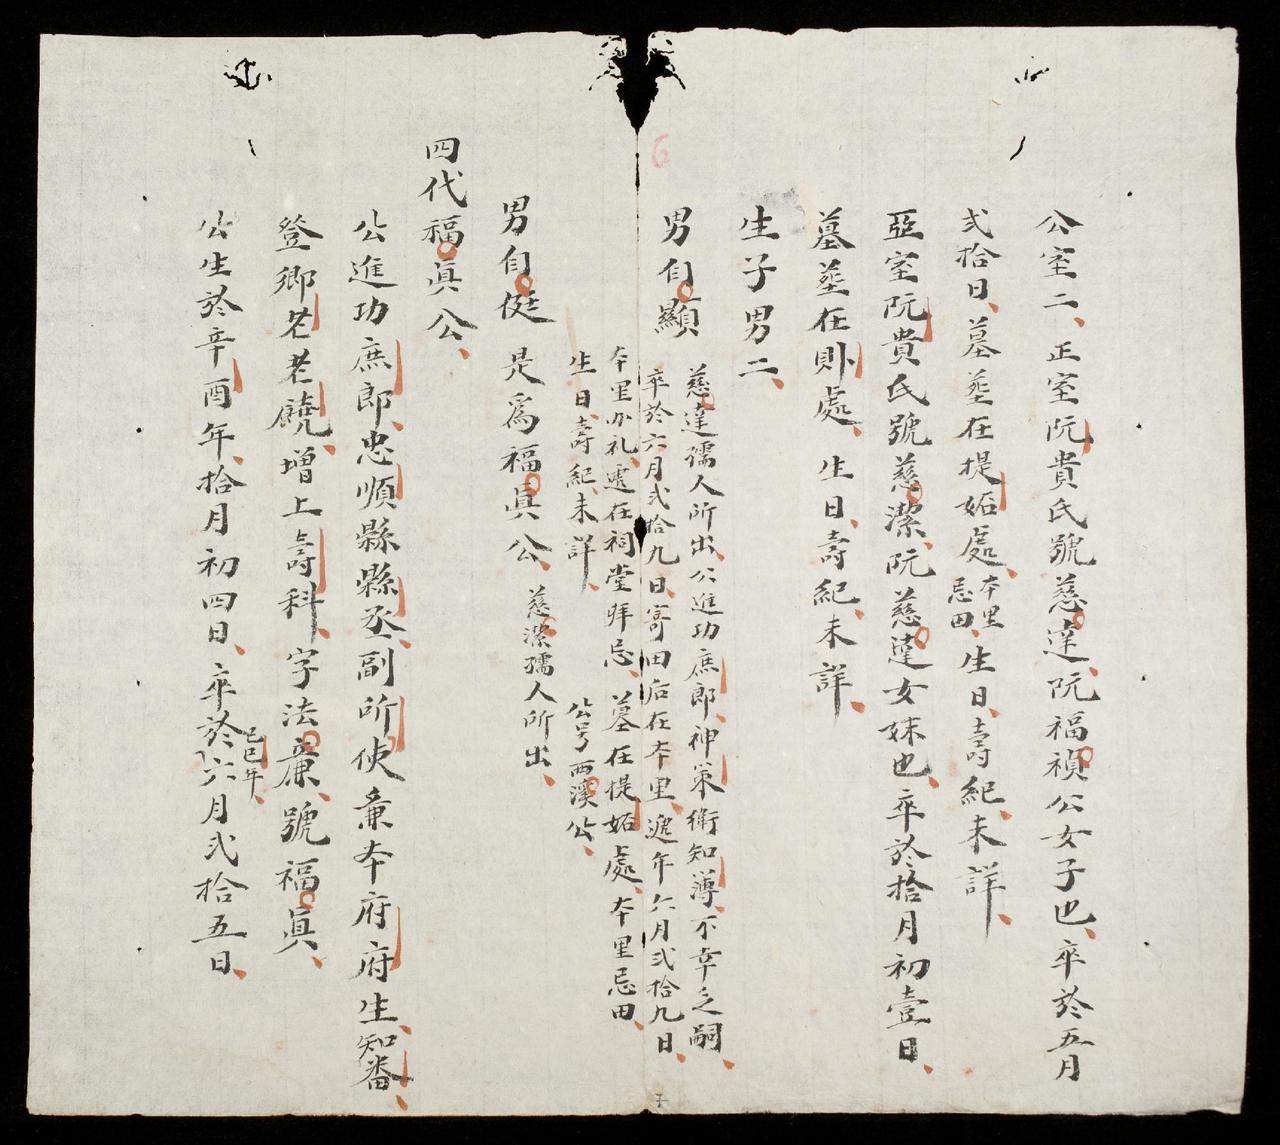 公室二正室阮貴氏號慈達阮福禎公女子也卒於五月
弍拾日墓塟在提妬處本里忌田生日壽紀未詳
亞室阮貴氏號慈潔阮慈達女妹也卒於拾月初壹日
墓塟在卧處生日壽紀未詳
生子男二
6
男自顯
慈達孺人所出公進功庶郎神策衛知簿不幸乏嗣
卒於六月弍拾九日寄田后在本里遞年六月弍拾九日
本里办礼遞在祠堂拜忌墓在提妬處本里忌田
生日壽紀未詳 公号西溪公
男自侹是爲福眞公慈潔孺人所出
四代福眞公
公進功庶郎忠順縣縣丞副所使兼本府府生知番
登鄉老老饒增上壽科字法㢘號福眞
公生於辛酉年拾月初四日卒於己巳年六月弍拾五日